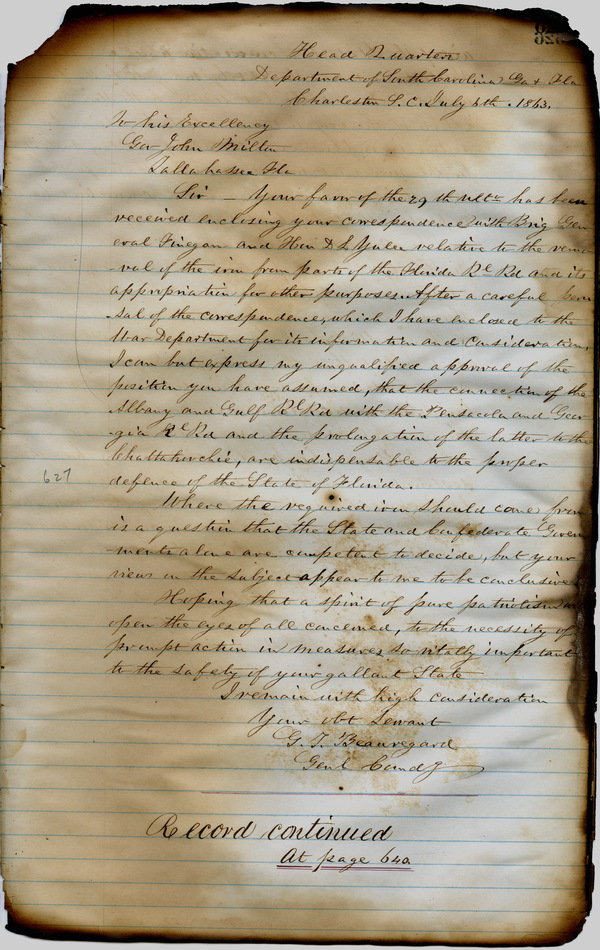 Head Quarters
Department of South Carolina Ga & Fla
Charleston S.C. July 4th. 1863.
To his Excellency
Gov John Milton
Tallahassee Fla
Sir _ Your favor of the 29th ulto has been
received enclosing your correspondence with Brig Gen
eral Finegan and Hon D L Yulee relative to the remo
val of the iron from parts of the Florida Rl Rd and its
appropriation for other purposes. After a careful peru
-sal of the correspondence, which I have enclosed to the
War Department for its information and consideration,
I can but express my unqualified approval of the
position you have assumed, that the connection of the
Albany and Gulf Rl Rd with the Pensacola and Geor
-gia Rl Rd and the prolongation of the latter to the
Chattahochie, are indispensable to the proper
627
defence of the State of Florida.
Where the required iron should come from
is a question that the State and Confederate Govern
-ments alone are competent to decide, but your
views on the subject appear to me to be conclusive
Hoping that a spirit of pure patriotism
open the eyes of all concerned, to the necessity of
prompt action in measures so vitally important
to the safety of your gallant State
I remain with high consideration
Your obt Servant
G. T. Beauregard
Genl Comdg
Record continued
At page 640